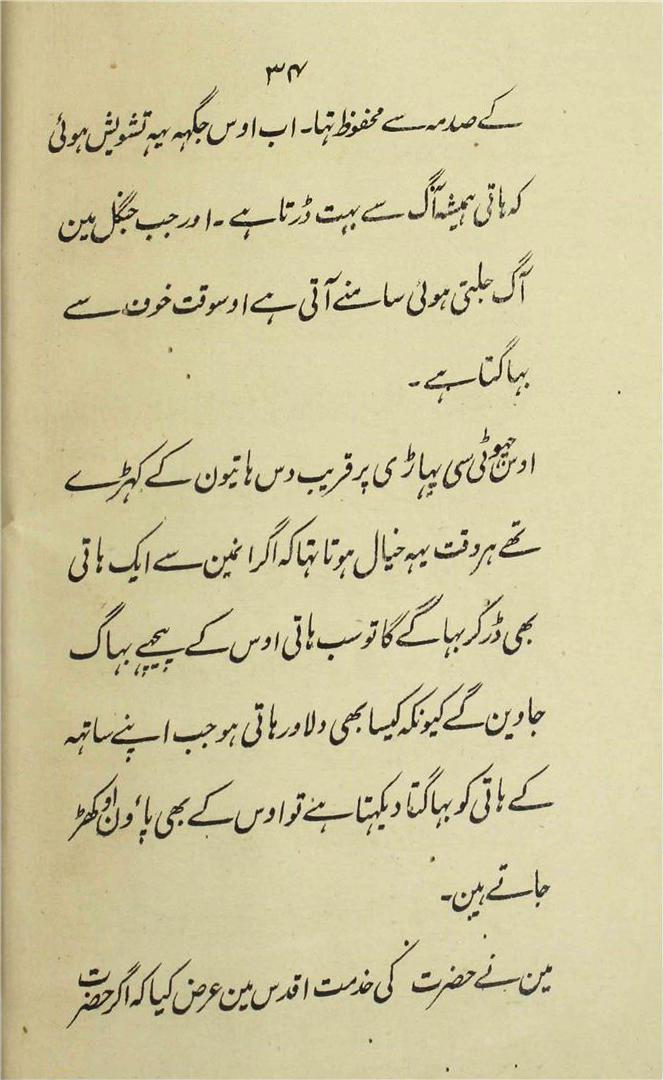 ۳۴
کے صدمہ سے محفوظ تہا۔ اب اوس جگہہ یہہ تشویش ہوئی
کہ ہاتی ہمیشہ آگ سے بہت ڈرتا ہے۔ اور جب جنگل مین
آگ جلتی ہوئی سامنے آتی ہے اوسوقت خوف سے
بہاگتا ہے۔
اوس چہوٹی سی پہاڑی پر قریب دس ہاتیون کے کہڑے
تھے ہر وقت یہہ خیال ہوتا تہا کہ اگر انمین سے ایک ہاتی
بھی ڈر کر بہاگے گا تو سب ہاتی اوس کے پیچھے بہاگ
جاوین گے کیونکہ کیسا بھی دلاور ہاتی ہو جب اپنے ساتہہ
کے ہاتی کو بہاگتا دیکہتا ہئے تو اوس کے بھی پاؤن اوکھڑ
جاتے ہین۔
مین نے حضرت کی خدمت اقدس مین عرض کیا کہ اگر حضرت